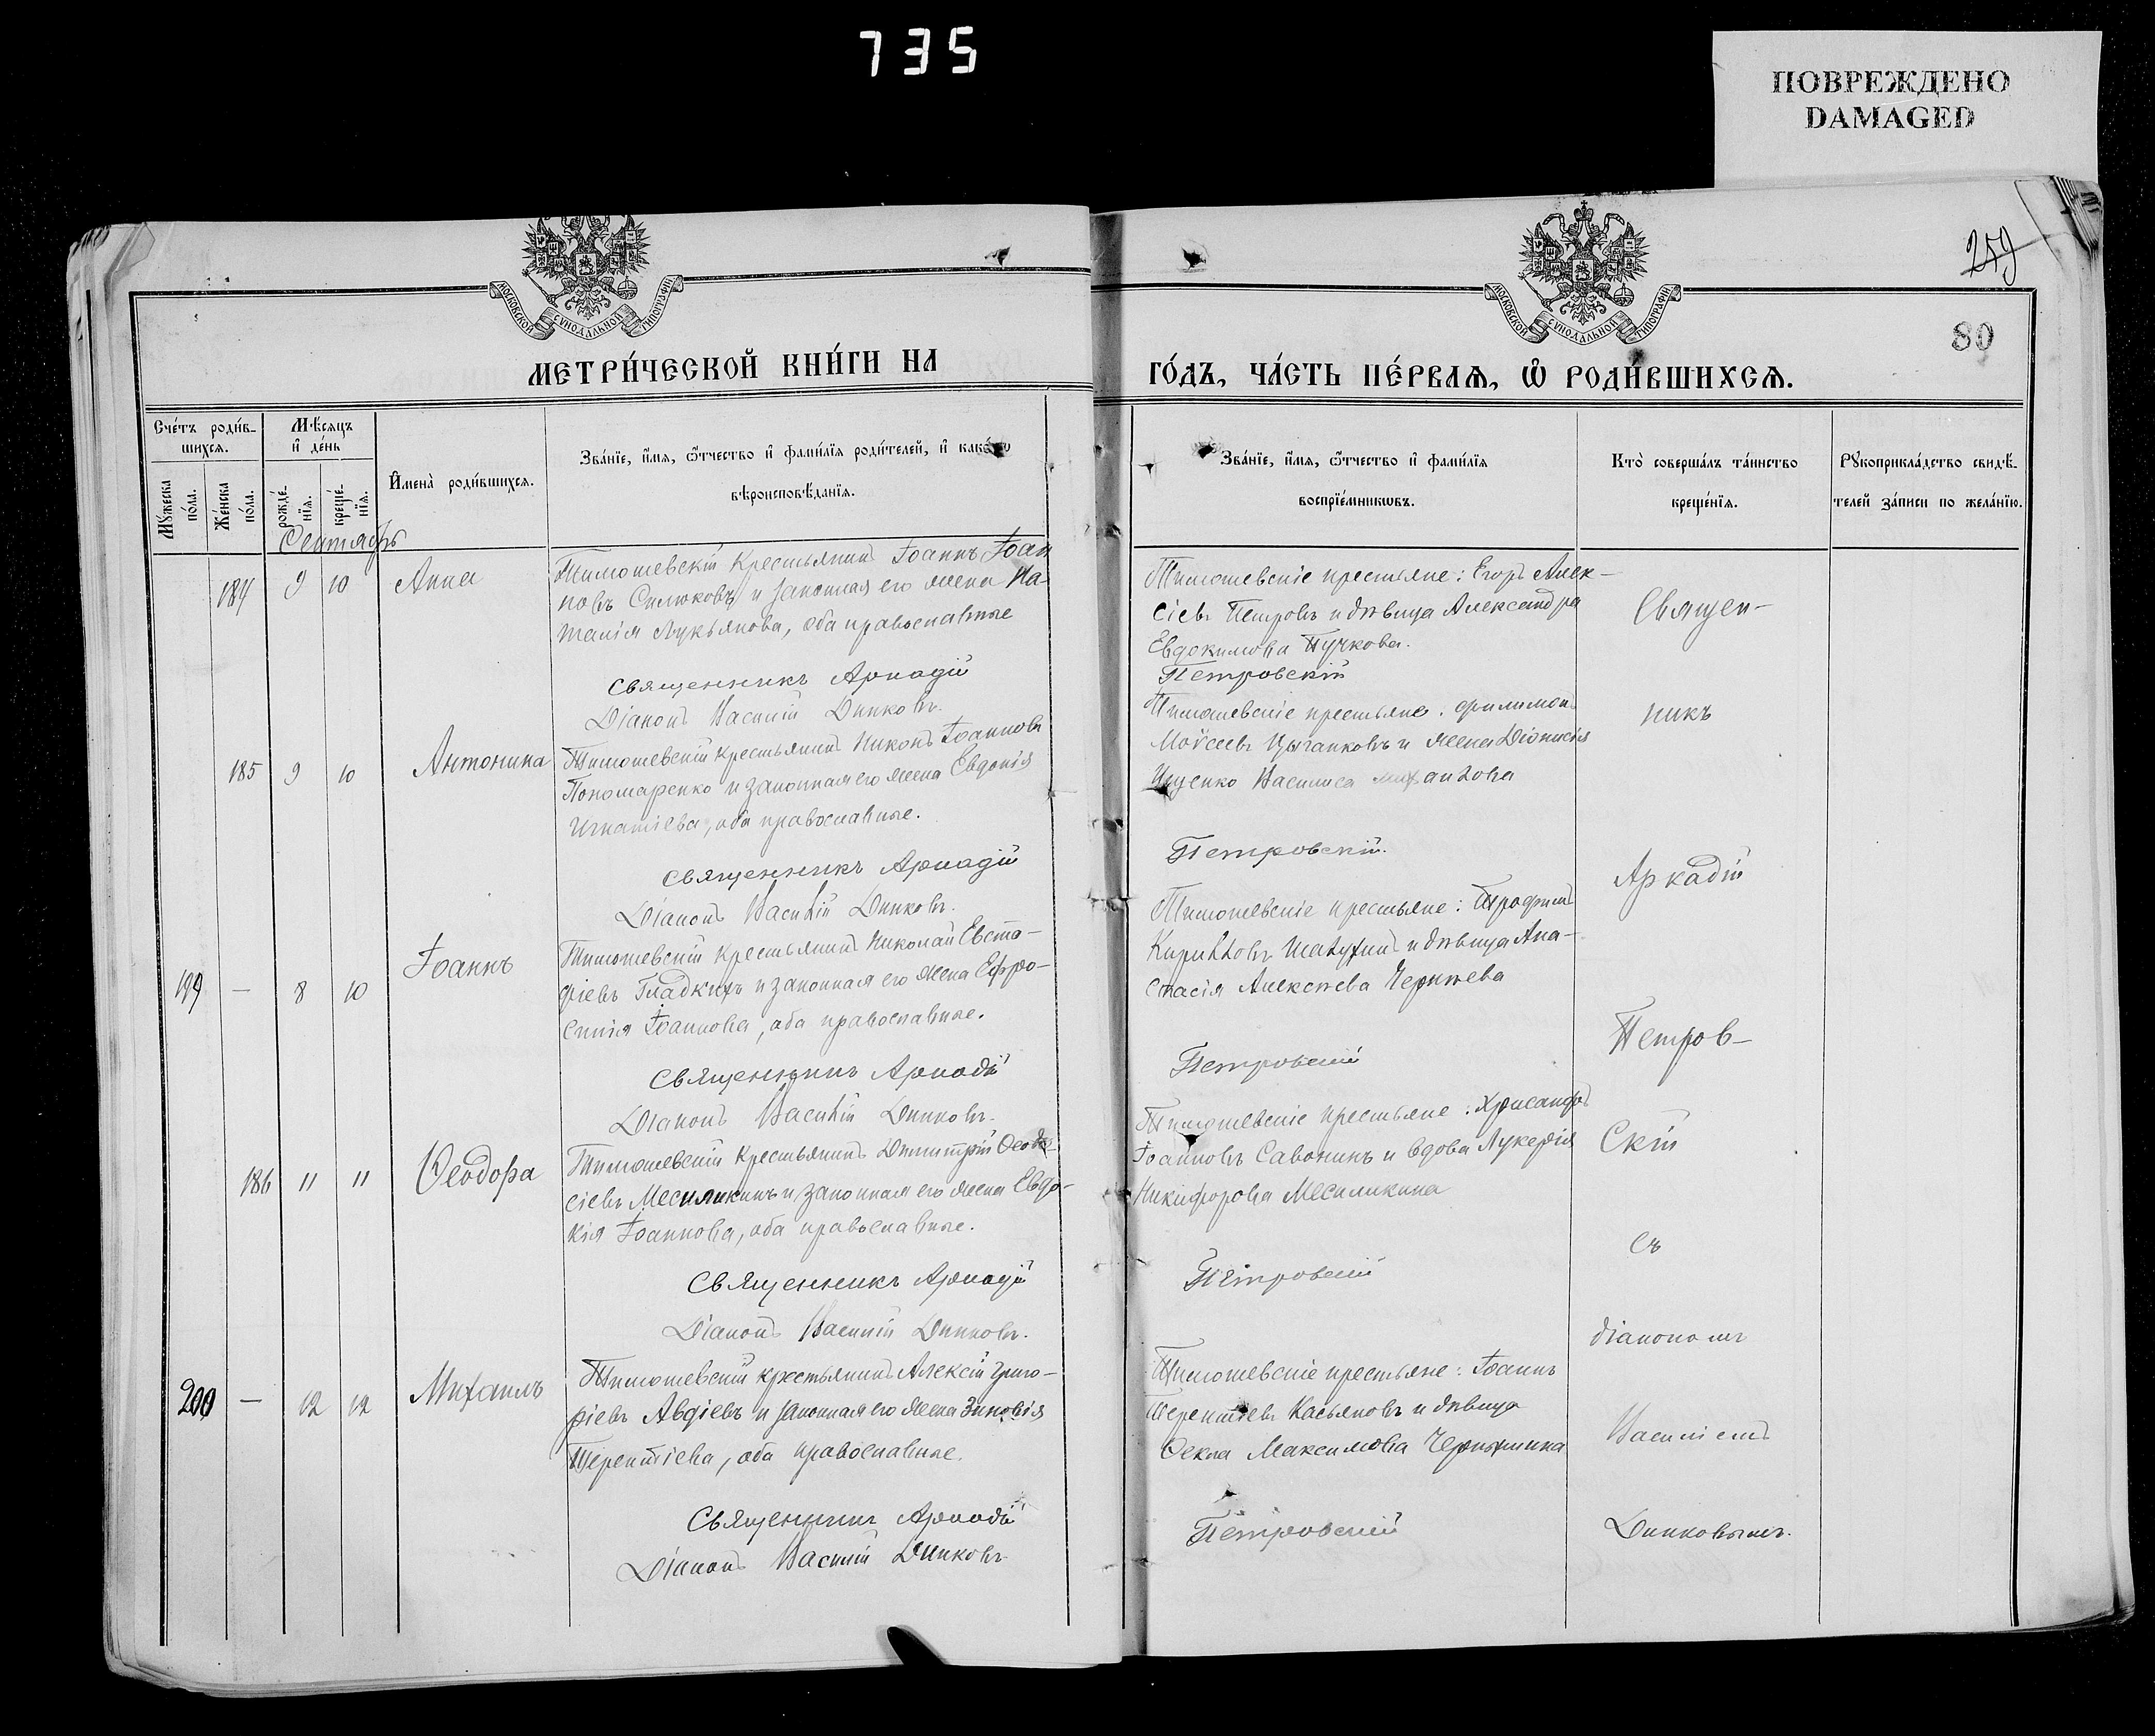 735
ПОВРЕЖДЕНО
DAMAGED
МОСКОВСКОЙ СѴНОДАЛЬНОЙ ТИПОГРАФІИ
МОСКОВСКОЙ СѴНОДАЛЬНОЙ ТИПОГРАФІИ
259
80
МЕТРИ́ЧЕСКОЙ КНИ́ГИ НА
ГО́ДЪ, ЧА́СТЬ ПЕ́РВАѦ, Ѡ҆ РОДИ́ВШИХСѦ.
Сче́тъ роди́в-
шихсѧ.
Мѣ́сѧцъ
и҆ де́нь
Мꙋ́жеска
по́ла.
Же́нска
по́ла.
рожде́-
нїѧ.
креще́-
нїѧ.
И҆мена̀ роди́вшихсѧ.
Зва́нїе, и҆́мѧ, ѻ҆́тчество и҆ фами́лїѧ роди́телей, и҆ како́гѡ
вѣроисповѣ́данїѧ.
Зва́нїе, и҆́мѧ, ѻ҆́тчество и҆ фами́лїѧ
воспрїе́мникѡвъ.
Кто̀ соверша́лъ та́инство
креще́нїѧ.
Рꙋкоприкла́дство свидѣ́-
телей за́писи по жела́нїю.
Сентябрь
184 9 10 Анна
Тимошевскій крестьянинъ Іоаннъ Іоан
новъ Силюковъ и законная его жена На-
талія Лукьянова, оба православные
Священникъ Аркадій
Діаконъ Василій Дипковъ.
Тимошевскіе крестьяне: Егоръ Алек-
сіевъ Петровъ и дѣвица Александра
Евдокимова Пучкова.
Петровскій
185 9 10 Антонина
Тимошевскій крестьянинъ Никонъ Іоанновъ
Пономаренко и законная его жена Евдокія
Игнатіева, оба православные.
Священникъ Аркадій
Діаконъ Василій Дипковъ.
Тимошевскіе крестьяне: Филимонъ
Моѵсеевъ Цыганковъ и жена Діонисія
Ищенко Василиса
Петровскій.
199 — 8 10 Іоаннъ
Тимошевскій крестьянинъ Николай Евста-
фіевъ Гладкихъ и законная его жена Ефро-
синія Іоаннова, оба православные.
Священникъ Аркадій
Діаконъ Василій Дипковъ.
Тимошевскіе крестьяне: Трофимъ
Кирилловъ Шатухинъ и дѣвица Ана-
стасія Алексѣева
Петровскій
186 11 11 Ѳеодора
Тимошевскій крестьянинъ Димитрій Ѳеодо-
сіевъ Месиликинъ и законная его жена Евдо-
кія Іоаннова, оба православные.
Священникъ Аркадій
Діаконъ Василій Дипковъ.
Тимошевскіе крестьяне: Хрисанфъ
Іоанновъ Савонинъ и вдова Лукерія
Никифорова Месиликина
Петровскій
200 — 12 12 Михаилъ
Тимошевскій крестьянинъ Алексій Григо-
ріевъ Авдіевъ и законная его жена Зиновія
Терентіева, оба православные.
Священникъ Аркадій
Діаконъ Василій Дипковъ
Тимошевскіе крестьяне: Іоаннъ
Терентіевъ Касьяновъ и дѣвица
Ѳекла Максимова
Петровскій
Священ-
никъ
Аркадій
Петров-
скій
съ
діакономъ
Василіемъ
Дипковымъ.